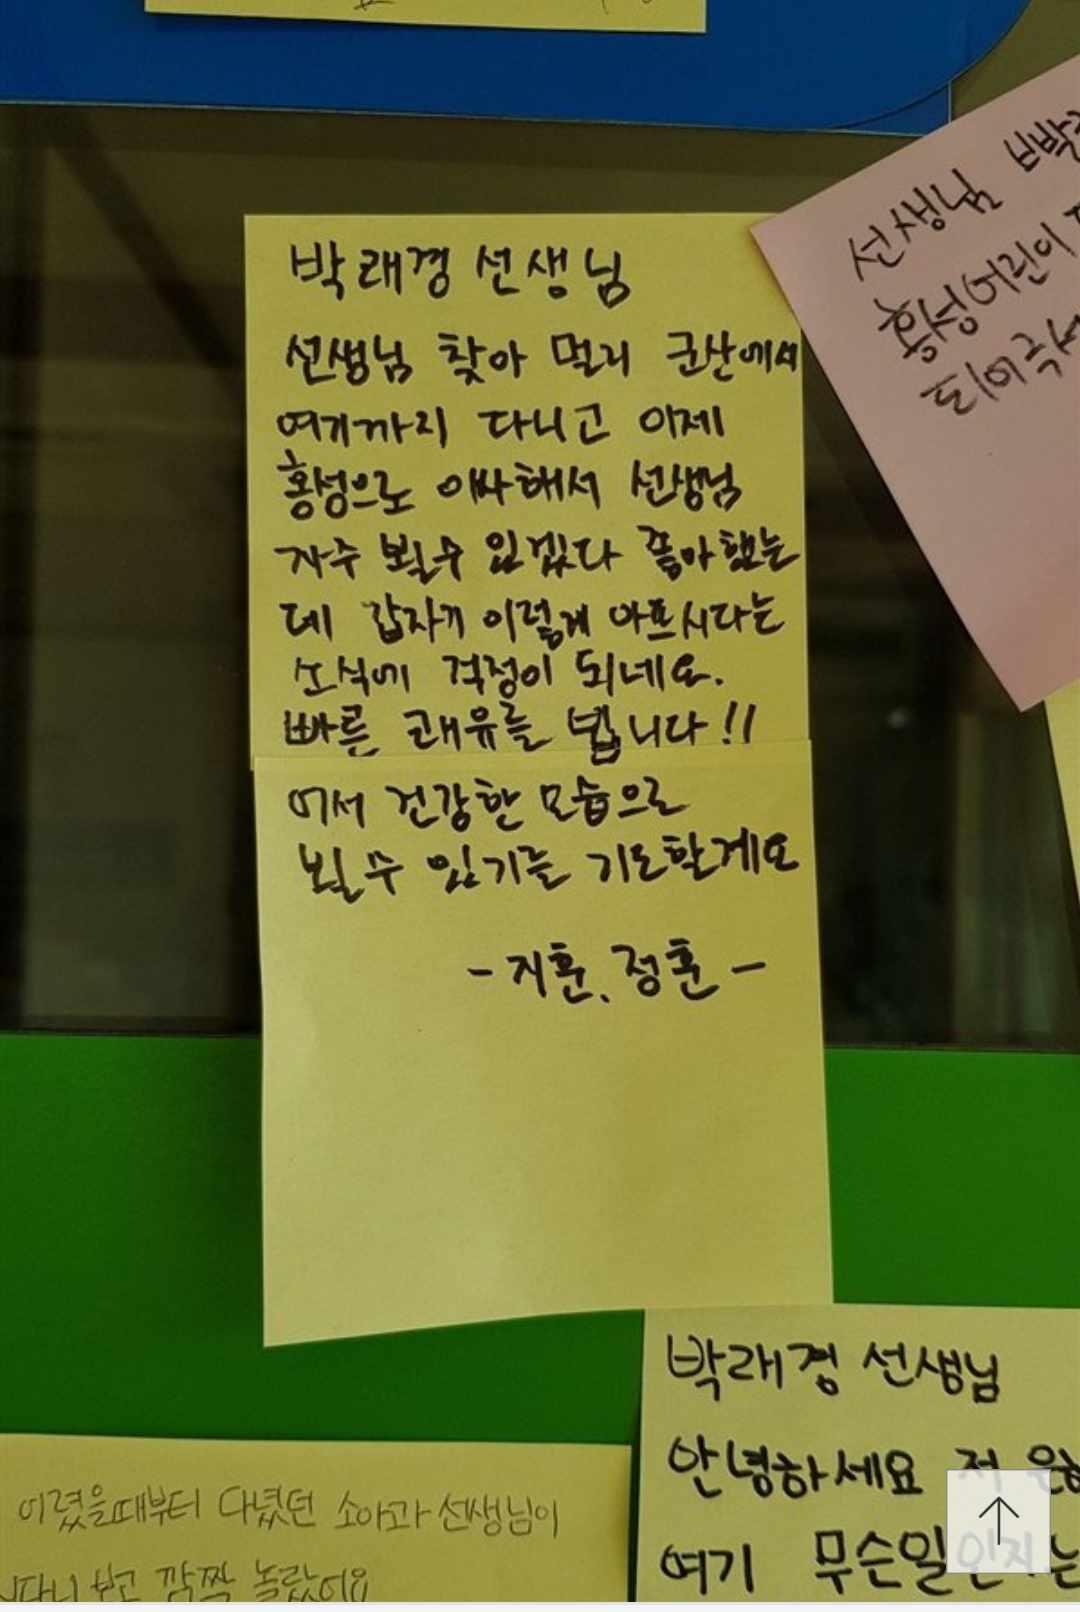 박래경 선생님
선생님 찾아 멀리 군산에서
여기까지 다니고 이제
홍성으로 이싸해서 선생님
자주 뵐수 있겠다 좋아했는
데 갑자기 이렇게 아프시다는
소식에 걱정이 되네요.
빠른 쾌유를 빕니다!!
어서 건강한 모습으로
뵐수 있기를 기도할게요
- 지훈, 정훈 -
선생님
홍성어린이
되어주셔
박래경 선생님
안녕하세요 저
여기 무슨일인지
어렸을때부터 다녔던 소아과 선생님이
보고 깜짝 놀랐어요